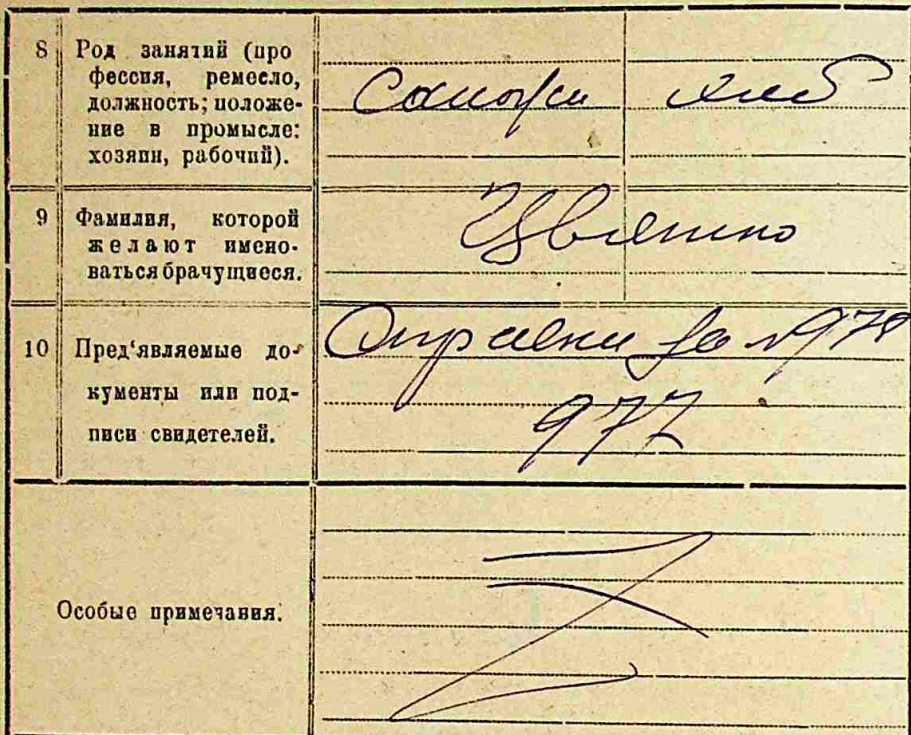 8 Род занятий (про
фессия, ремесло,
должность; положе-
ние в промысле:
хозяин, рабочий).
сапожн хлеб
9 Фамилия, которой
желают имено-
ваться брачущиеся.
10 Пред'являемые до-
кументы или под-
писи свидетелей.
Справки за №978
977
Особые примечания.